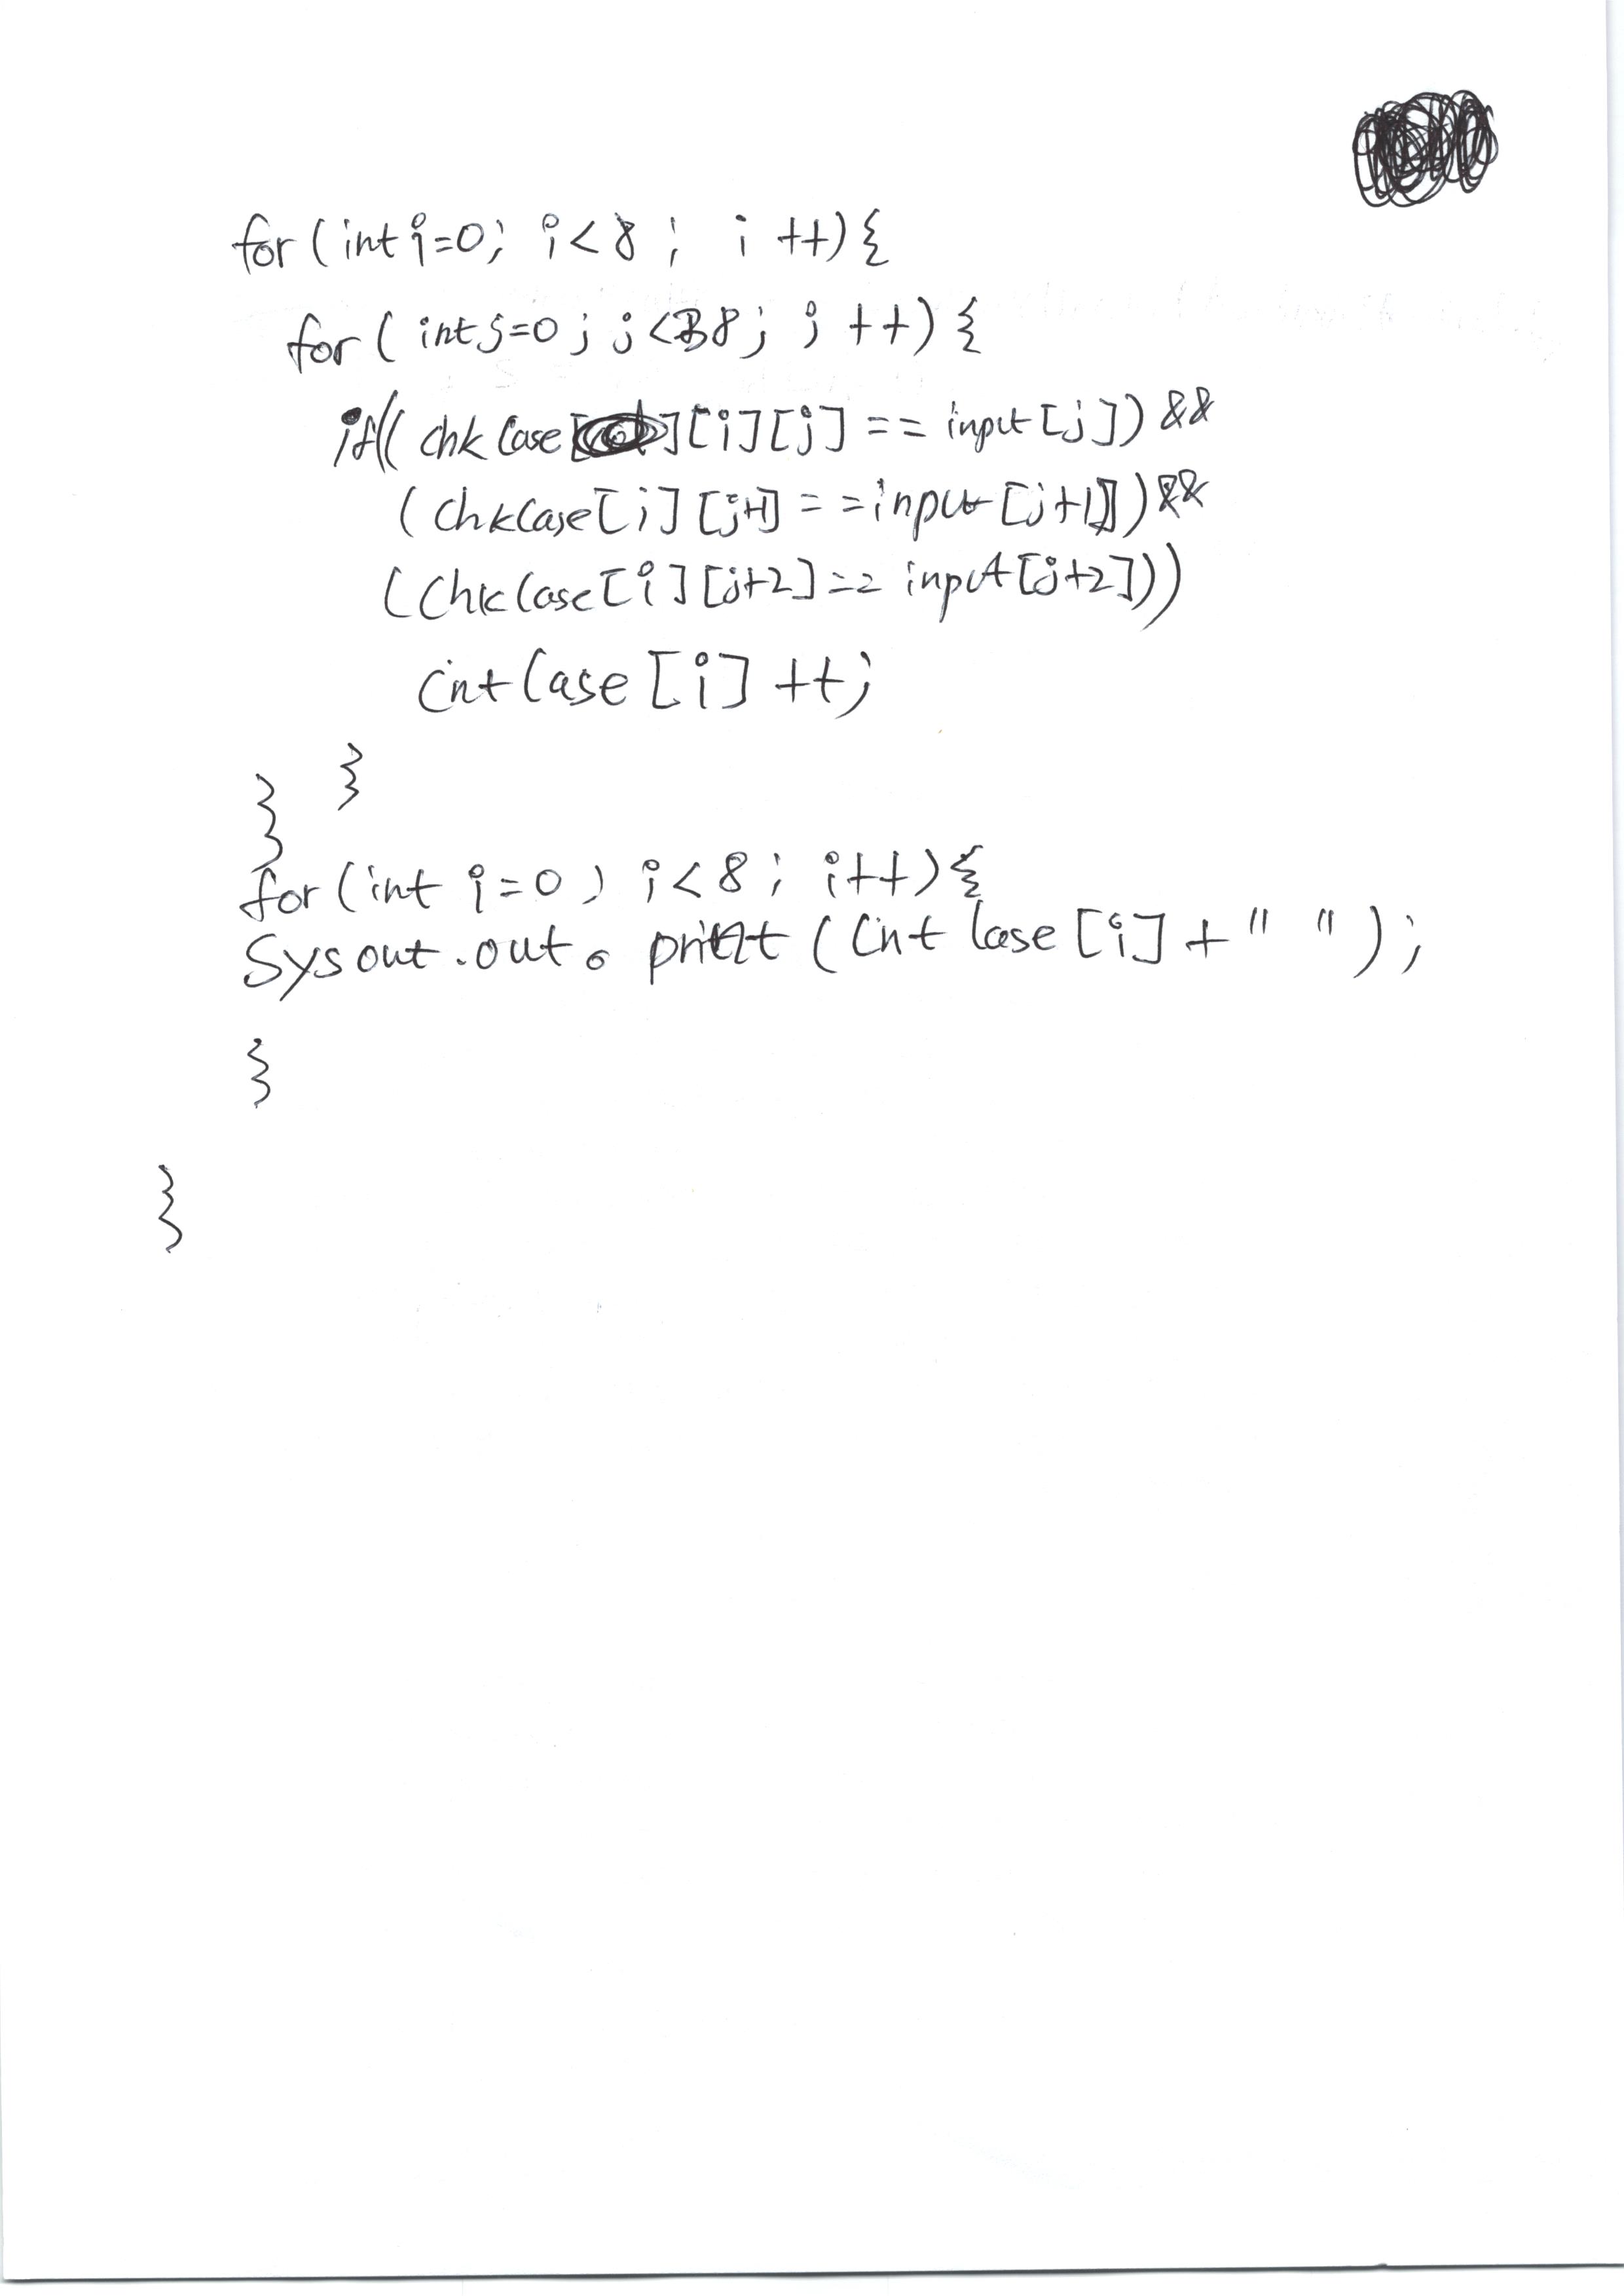 for (int i=0; i<8; i ++){
for ( int j=0; j<38; j ++) {
if(( chkCase[i][j] == input [j]) &&
( chkCase[i] [j+1] ==input [j+1]) &&
(chkCase[i][j+2]== input[j+2]))
cntCase [i] ++;
}
}
for (int i=0; i<8; i++){
Sysout.out. print (cntCase [i] + " ");
}
}